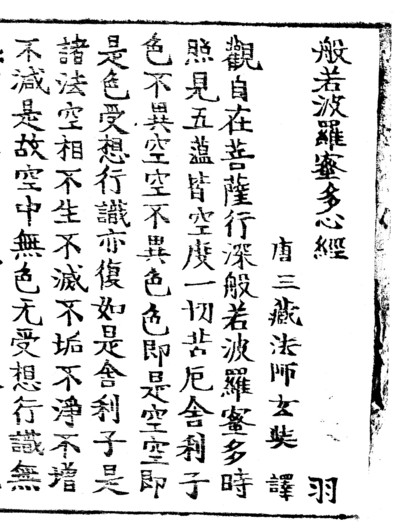 般若波羅蜜多心經 羽
唐三藏法師玄奘 譯
觀自在菩薩行深般若波羅蜜多時
照見五蘊皆空度一切苦厄舍利子
色不異空空不異色色即是空空即
是色受想行識亦復如是舍利子是
諸法空相不生不滅不垢不淨不增
不減是故空中無色无受想行識無